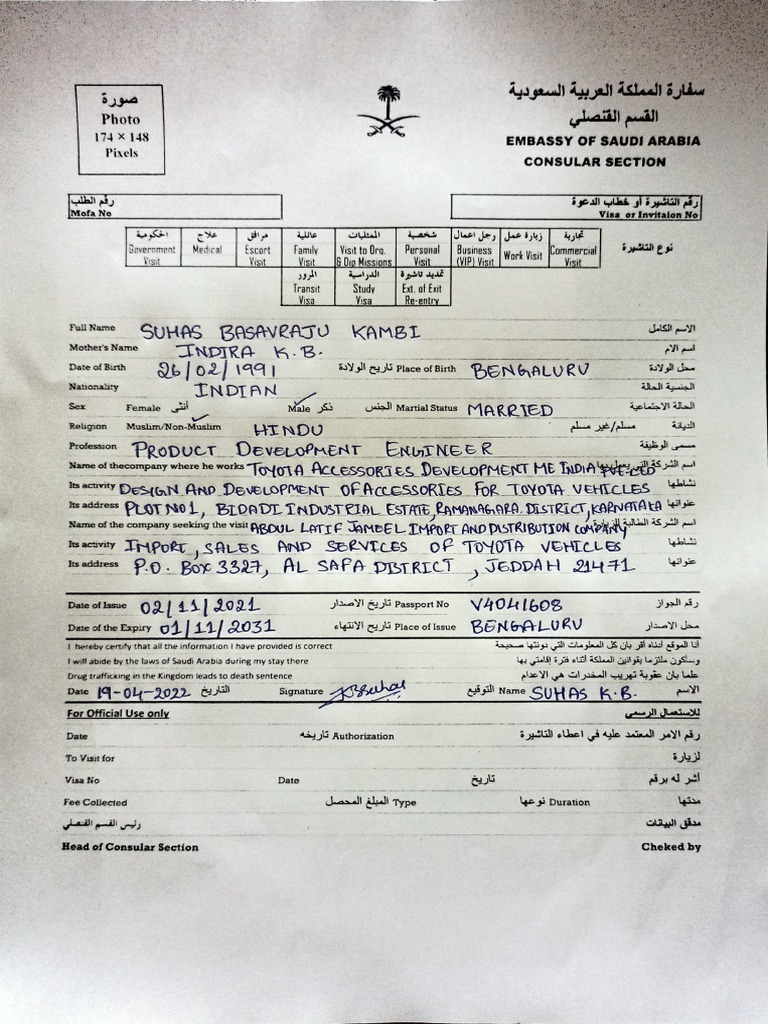 صورة
Photo
174 × 148
Pixels
سفارة المملكة العربية السعودية
القسم القنصلي
EMBASSY OF SAUDI ARABIA
CONSULAR SECTION
رقم الطلب
Mofa No
رقم التاشيرة أو خطاب الدعوة
Visa or Invitaion No
الحكومية علاج مرافق عائلية الممثليات شخصية رجل اعمال زيارة عمل تجارية
Government Visit Medical Escort Visit Family Visit Visit to Org. & Dip Missions Personal Visit Business (VIP) Visit Work Visit Commercial Visit
نوع التاشيرة
المرور الدراسية تمديد تاشيرة
Transit Visa Study Visa Ext. of Exit Re-entry
Full Name SUHAS BASAVRAJU KAMBI الاسم الكامل
Mother's Name INDIRA K.B. اسم الام
Date of Birth 26/02/1991 تاريخ الولادة Place of Birth BENGALURU محل الولادة
Nationality INDIAN الجنسية الحالة
Sex Female أنثى Male ✓ ذكر الجنس Martial Status MARRIED الحالة الاجتماعية
Religion Muslim/Non-Muslim ✓ HINDU مسلم/غير مسلم الديانة
Profession PRODUCT DEVELOPMENT ENGINEER مسمى الوظيفة
Name of thecompany where he works TOYOTA ACCESSORIES DEVELOPMENT ME INDIA PVT LTD اسم الشركة التي يعمل بها
Its activity DESIGN AND DEVELOPMENT OF ACCESSORIES FOR TOYOTA VEHICLES نشاطها
Its address PLOT NO 1, BIDADI INDUSTRIAL ESTATE, RAMANAGARA DISTRICT, KARNATAKA عنوانها
Name of the company seeking the visit ABDUL LATIF JAMEEL IMPORT AND DISTRIBUTION COMPANY اسم الشركة الطالبة للزيارة
Its activity IMPORT, SALES AND SERVICES OF TOYOTA VEHICLES نشاطها
Its address P.O. BOX 3327, AL SAFA DISTRICT, JEDDAH 21471 عنوانها
Date of Issue 02/11/2021 تاريخ الاصدار Passport No V4041608 رقم الجواز
Date of the Expiry 01/11/2031 تاريخ الانتهاء Place of Issue BENGALURU محل الاصدار
I hereby certify that all the information I have provided is correct أنا الموقع أدناه أقر بان كل المعلومات التي دونتها صحيحة
I will abide by the laws of Saudi Arabia during my stay there وسأكون ملتزما بقوانين المملكة أثناء فترة إقامتي بها
Drug trafficking in the Kingdom leads to death sentence علما بان عقوبة تهريب المخدرات هي الاعدام
Date 19-04-2022 التاريخ Signature التوقيع Name SUHAS K.B. الاسم
For Official Use only للاستعمال الرسمي
Date تاريخه Authorization رقم الامر المعتمد عليه في اعطاء التاشيرة
To Visit for لزيارة
Visa No Date تاريخ أشر له برقم
Fee Collected المبلغ المحصل Type نوعها Duration مدتها
رئيس القسم القنصلي مدقق البيانات
Head of Consular Section Cheked by